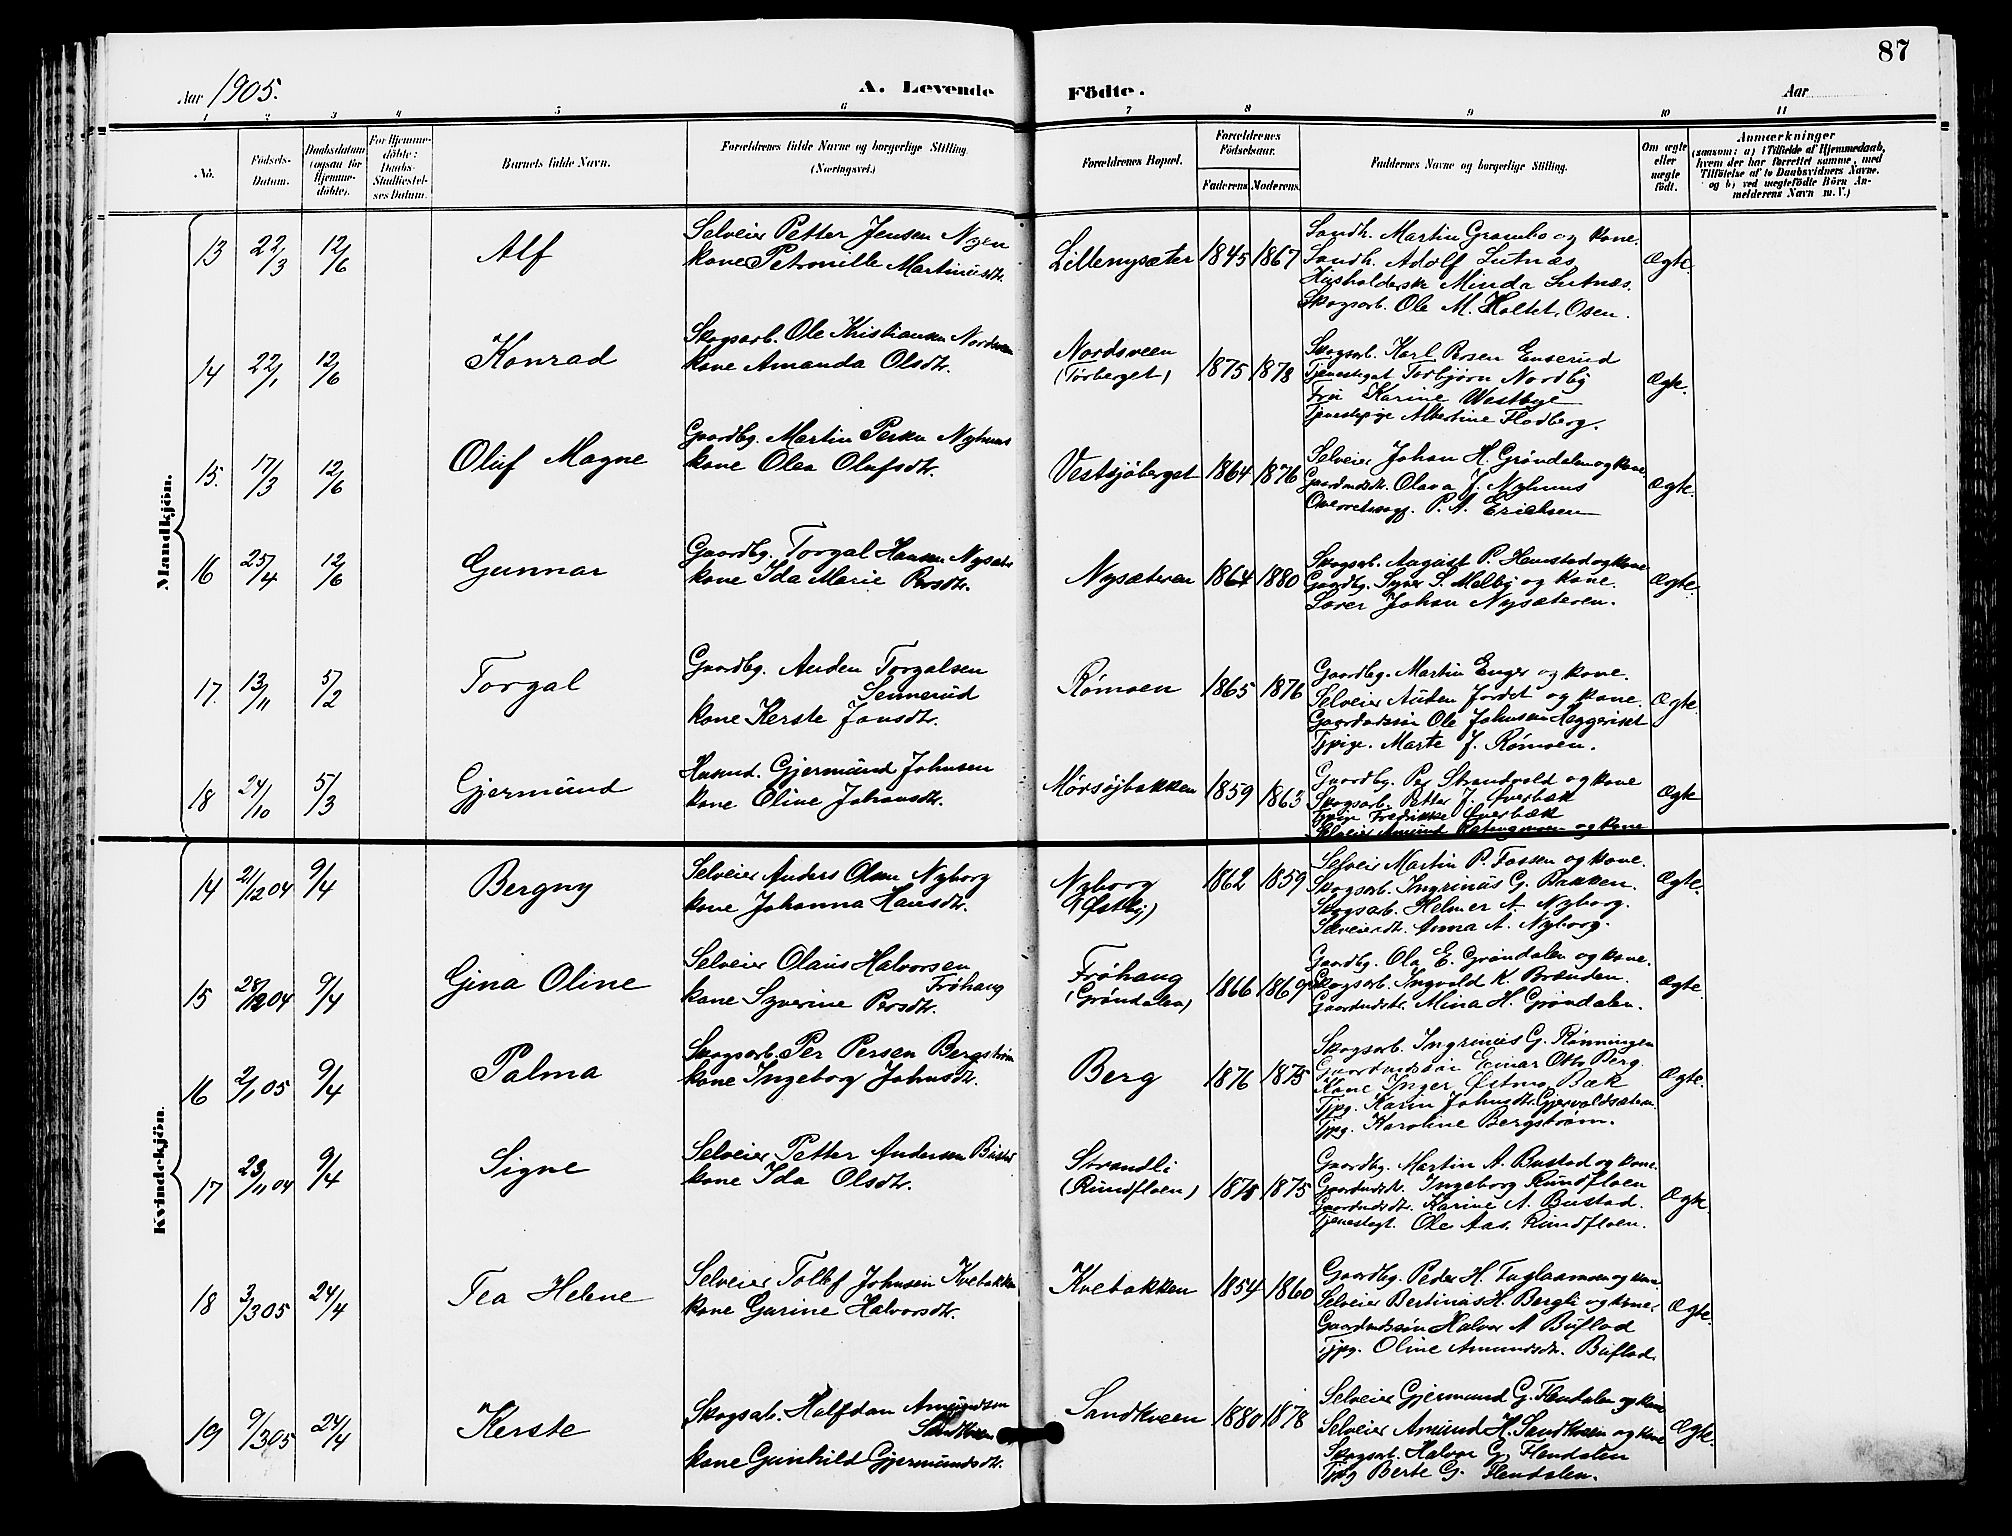 87
Aar 1905.
A. Levende Födte.
Aar
1 2 3 4 5 6 7 8 9 10 11
No.
Födsels-Datum.
Daabsdatum (ogsaa for Hjemmedöbte).
For Hjemmedöbte: Daabs-Stadfæstelses Datum.
Barnets fulde Navn.
Forældrenes fulde Navne og borgerlige Stilling. (Næringsvei.)
Forældrenes Bopæl.
Forældrenes Födselsaar.
Faderens. Moderens.
Faddernes Navne og borgerlige Stilling.
Om ægte eller uægte födt.
Anmærkninger
(saasom: a) i Tilfælde af Hjemmedaab, hvem der har forrettet samme, med Tilföielse af to Daabsvidners Navne, og b) ved uægtefödte Börn Anmelderens Navn m. V.)
Mandkjön.
13 22/3 12/6 Alf
Selveier Petter Jensen Nyen
kone Petronille Martinusdtr.
Lillenysæter 1845 1867
Sandh. Martin Grambo og kone.
Sandh. Adolf Lutnæs
Husholderske Minda Lutnæs.
Skogsarb. Ole M. Holtet, Osen.
Ægte.
14 22/1 12/6 Konrad
Skogsarb. Ole Kristiansen Nordsveen
kone Amanda Olsdtr.
Nordsveen
(Törberget) 1875 1878
Skogsarb. Karl Rosen Enserud
Tjenestegut Torbjörn Nordby
Karine Westbye
Tjenestepige Albertine Flodberg.
Ægte.
15. 17/3 12/6 Oluf Magne
Gaardbg. Martin Persen Nyhuus
kone Olea Olufsdtr.
Vestsjöberget 1864 1876
Selveier Johan H. Gröndalen og kone
Gaardmdsdtr. Olava J. Nyhuus
P. A. Erichsen
Ægte.
16 25/4 12/6 Gunnar
Gaardbg. Torgal Hansen Nysæter
kone Ida Marie Persdtr.
Nysæteren 1864 1880
Skogsarb. August P. Hemstad og kone
Gaardbg. Syver S. Melby og kone.
Johan Nysæteren.
Ægte.
17. 13/11 5/2 Torgal
Gaardbg. Auden Torgalsen
Sennerud
kone Kerste Jonsdtr.
Römoen 1865 1876
Gaardbg. Martin Enger og kone.
Selveier Auden Jordet og kone.
Gaardmdssön Ole Johnsen Heggeriset
Tjpige. Marte J. Römoen.
Ægte.
18 24/10 5/3 Gjermund
Husmd. Gjermund Johnsen
kone Oline Johansdtr.
Mörsöjbakken 1859 1863
Gaardbg. Per Strandvold og kone
Skogsarb. Petter J. Överbæk
Tjpige Fredrikke Överbæk
Selveier Amund og kone
Ægte
Kvindekjön.
14 21/12 04 9/4 Bergny
Selveier Anders Olsen Nyborg
kone Johanna Hansdtr.
Nyborg
(Østby) 1862 1859
Selveier Martin P. Fossen og kone.
Skogsarb. Ingrinus G. Bakken.
Skogsarb. Helmer A. Nyborg.
Selveierdtr. Anna A. Nyborg.
Ægte.
15 28/12 04 9/4 Gina Oline
Selveier Olaus Halvorsen
Fröhaug
kone Syverine Persdtr.
Fröhaug
(Gröndalen) 1866 1869
Gaardbg. Ola E. Gröndalen og kone.
Skogsarb. Ingvald K. Brænden.
Gaardmdsdtr. Mina H. Gröndalen.
Ægte.
16 2/1 05 9/4 Palma
Skogsarb. Per Persen Bergström
kone Ingeborg Johnsdtr.
Berg 1876 1875
Skogsarb. Ingrinus G. Rönningen
Gaardmdssön Einar Otto Berg
Kone Inger Østmo Bæk
Tjpg. Karin Johnsdtr. Gjervoldsæteren.
Tjpg. Karoline Bergström.
Ægte.
17 23/11 04 9/4 Signe
Selveier Petter Andersen Bustad
kone Ida Olsdtr.
Strandli
(Rundfloen) 1875 1875
Gaardbg. Martin A. Bustad og kone.
Gaardmdsdtr. Ingeborg Rundfloen
Gaardmdsdtr. Karine A. Bustad.
Tjenestegt. Ole Aas. Rundfloen.
Ægte.
18 3/3 05 24/4 Tea Helene
Selveier Tollef Johnsen Kvebakken
kone Gurine Halvorsdtr.
Kvebakken 1854 1860
Gaardbg. Peder H. Fuglaasmoen og kone
Selveier Bertinus H. Bergli og kone.
Gaardmdssön Halvor A Buflod
Tjpg. Oline Amundsdtr. Buflod.
Ægte.
19 9/3 05 24/4 Kerste
Skogsab. Halfdan Amundsen
Sandkveen
kone Gunhild Gjermundsdtr.
Sandkveen 1880 1878
Selveier Gjermund G. Flendalen og kone
Selveier Amund H. Sandkveen og kone
Skogsarb. Halvor G. Flendalen
Tjpg Berte G. Flendalen.
Ægte.